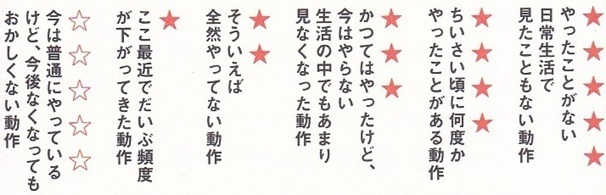 ★★★★★
やったことがない
日常生活で
見たこともない動作
★★★★
ちいさい頃に何度か
やったことがある動作
★★★
かつてはやったけど、
今はやらない
生活の中でもあまり
見なくなった動作
★★
そういえば
全然やってない動作
★
ここ最近でだいぶ頻度
が下がってきた動作
☆☆☆☆☆
今は普通にやっている
けど、今後なくなっても
おかしくない動作